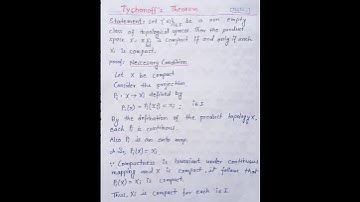 Tychonoff's Theorem
Statement: Let {Xi} be a non empty
class of topological spaces. Then the product
space X = π Xi is compact if and only if each
Xi is compact.
proof: Necessary Condition
Let X be compact
Consider the projection
Pi : X → Xi defined by
Pi(x) = Pi({xi}) = xi ; i∈I
By the definition of the product topology X,
each Pi is continous.
Also Pi is an onto map
Pi(X) = Xi
∵ Compactness is invariant under continuous
mapping and X is compact, it follows that
Pi(X) = Xi is compact
Thus, Xi is compact for each i∈I.